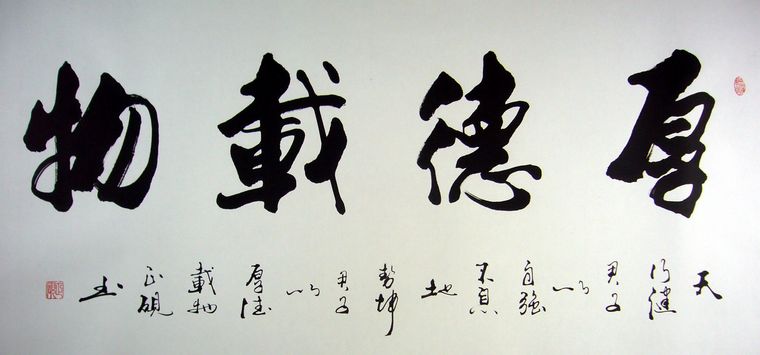 厚德載物
天行健君子以自強不息地勢坤君子以厚德載物正硯书